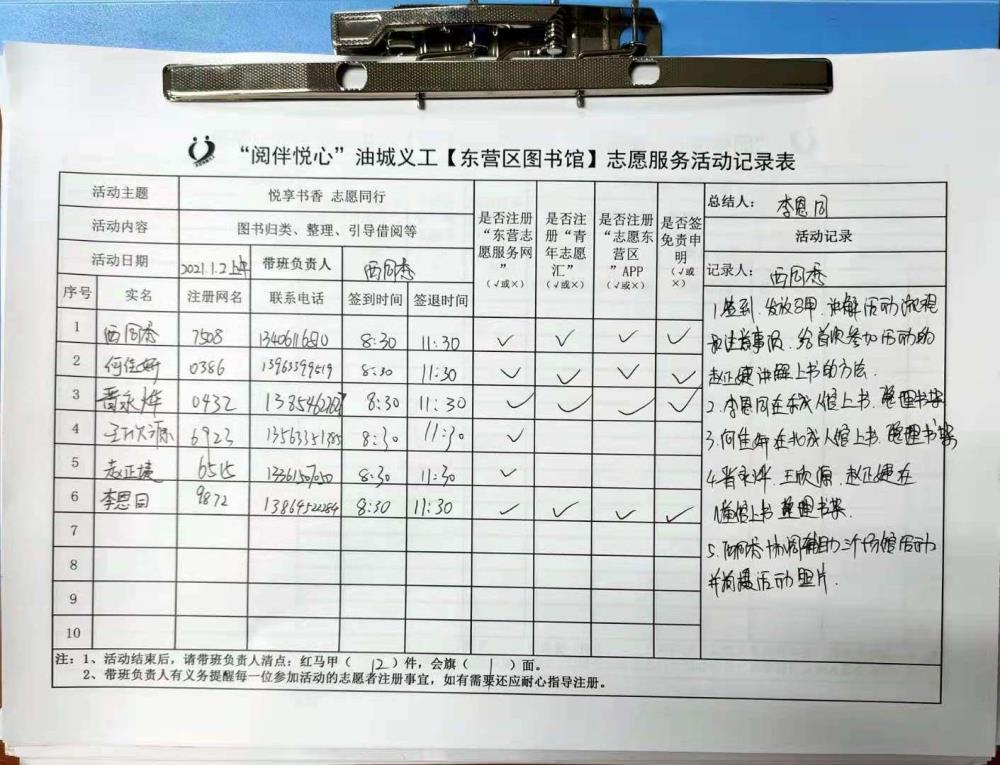 “阅伴悦心”油城义工【东营区图书馆】志愿服务活动记录表
活动主题 悦享书香 志愿同行
活动内容 图书归类、整理、引导借阅等
活动日期 2021.1.2上午 带班负责人
是否注册“东营志愿服务网”（√或×）
是否注册“青年志愿汇”（√或×）
是否注册“志愿东营区”APP（√或×）
是否签免责申明（√或×）
序号 实名 注册网名 联系电话 签到时间 签退时间
1 7508 8:30 11:30 √ √ √ √
2 何佳妍 0386 13963399519 8:30 11:30 √ √ √ √
3 0432 8:30 11:30 √ √ √ √
4 王欣源 6923 8:30 11:30 √
5 赵正婕 6515 8:30 11:30 √
6 李恩同 9872 13864522284 8:30 11:30 √ √ √ √
7
8
9
10
总结人： 李恩同
活动记录
记录人：
1.签到.发放马甲.讲解活动流程
和注意事项.给首次参加活动的
赵正婕讲解上书的方法.
2.李恩同在东成人馆上书.整理书架
3.何佳妍在北成人馆上书.整理书架
4. 王欣源 赵正婕在
上书 整理书架.
5. 协调辅助三个场馆活动
并拍摄活动照片.
注：1、活动结束后，请带班负责人清点：红马甲（ 12 ）件，会旗（ 1 ）面。
2、带班负责人有义务提醒每一位参加活动的志愿者注册事宜，如有需要还应耐心指导注册。